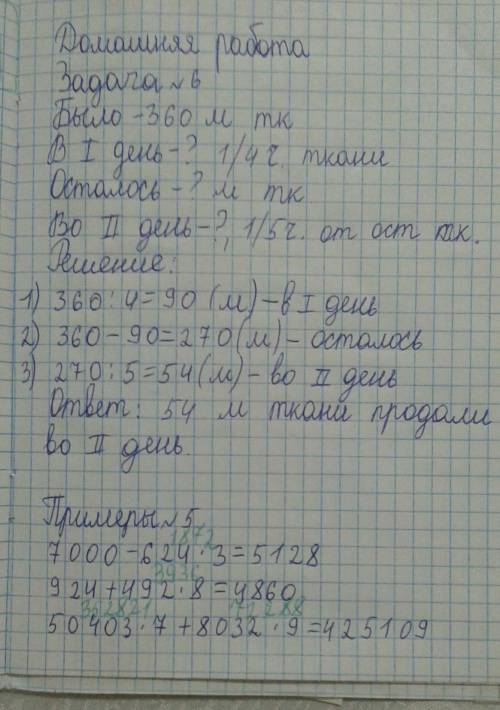 Домашняя работа
Задача №6
Было - 360 м тк
В I день - ? 1/4 ч. ткани
Осталось - ? м тк
Во II день - ?, 1/5 ч. от ост тк.
Решение:
1) 360 : 4 = 90 (м) - в I день
2) 360 - 90 = 270 (м) - осталось
3) 270 : 5 = 54 (м) - во II день
Ответ: 54 м ткани продали
во II день.
Примеры №5
1872
7000 - 624 · 3 = 5128
3936
924 + 492 · 8 = 4860
352821 72288
50403 · 7 + 8032 · 9 = 425109